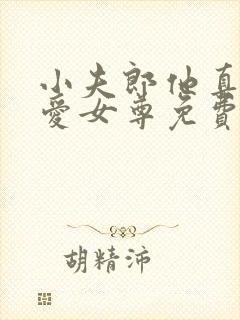 小夫郎他真
爱女尊免費
胡精沛